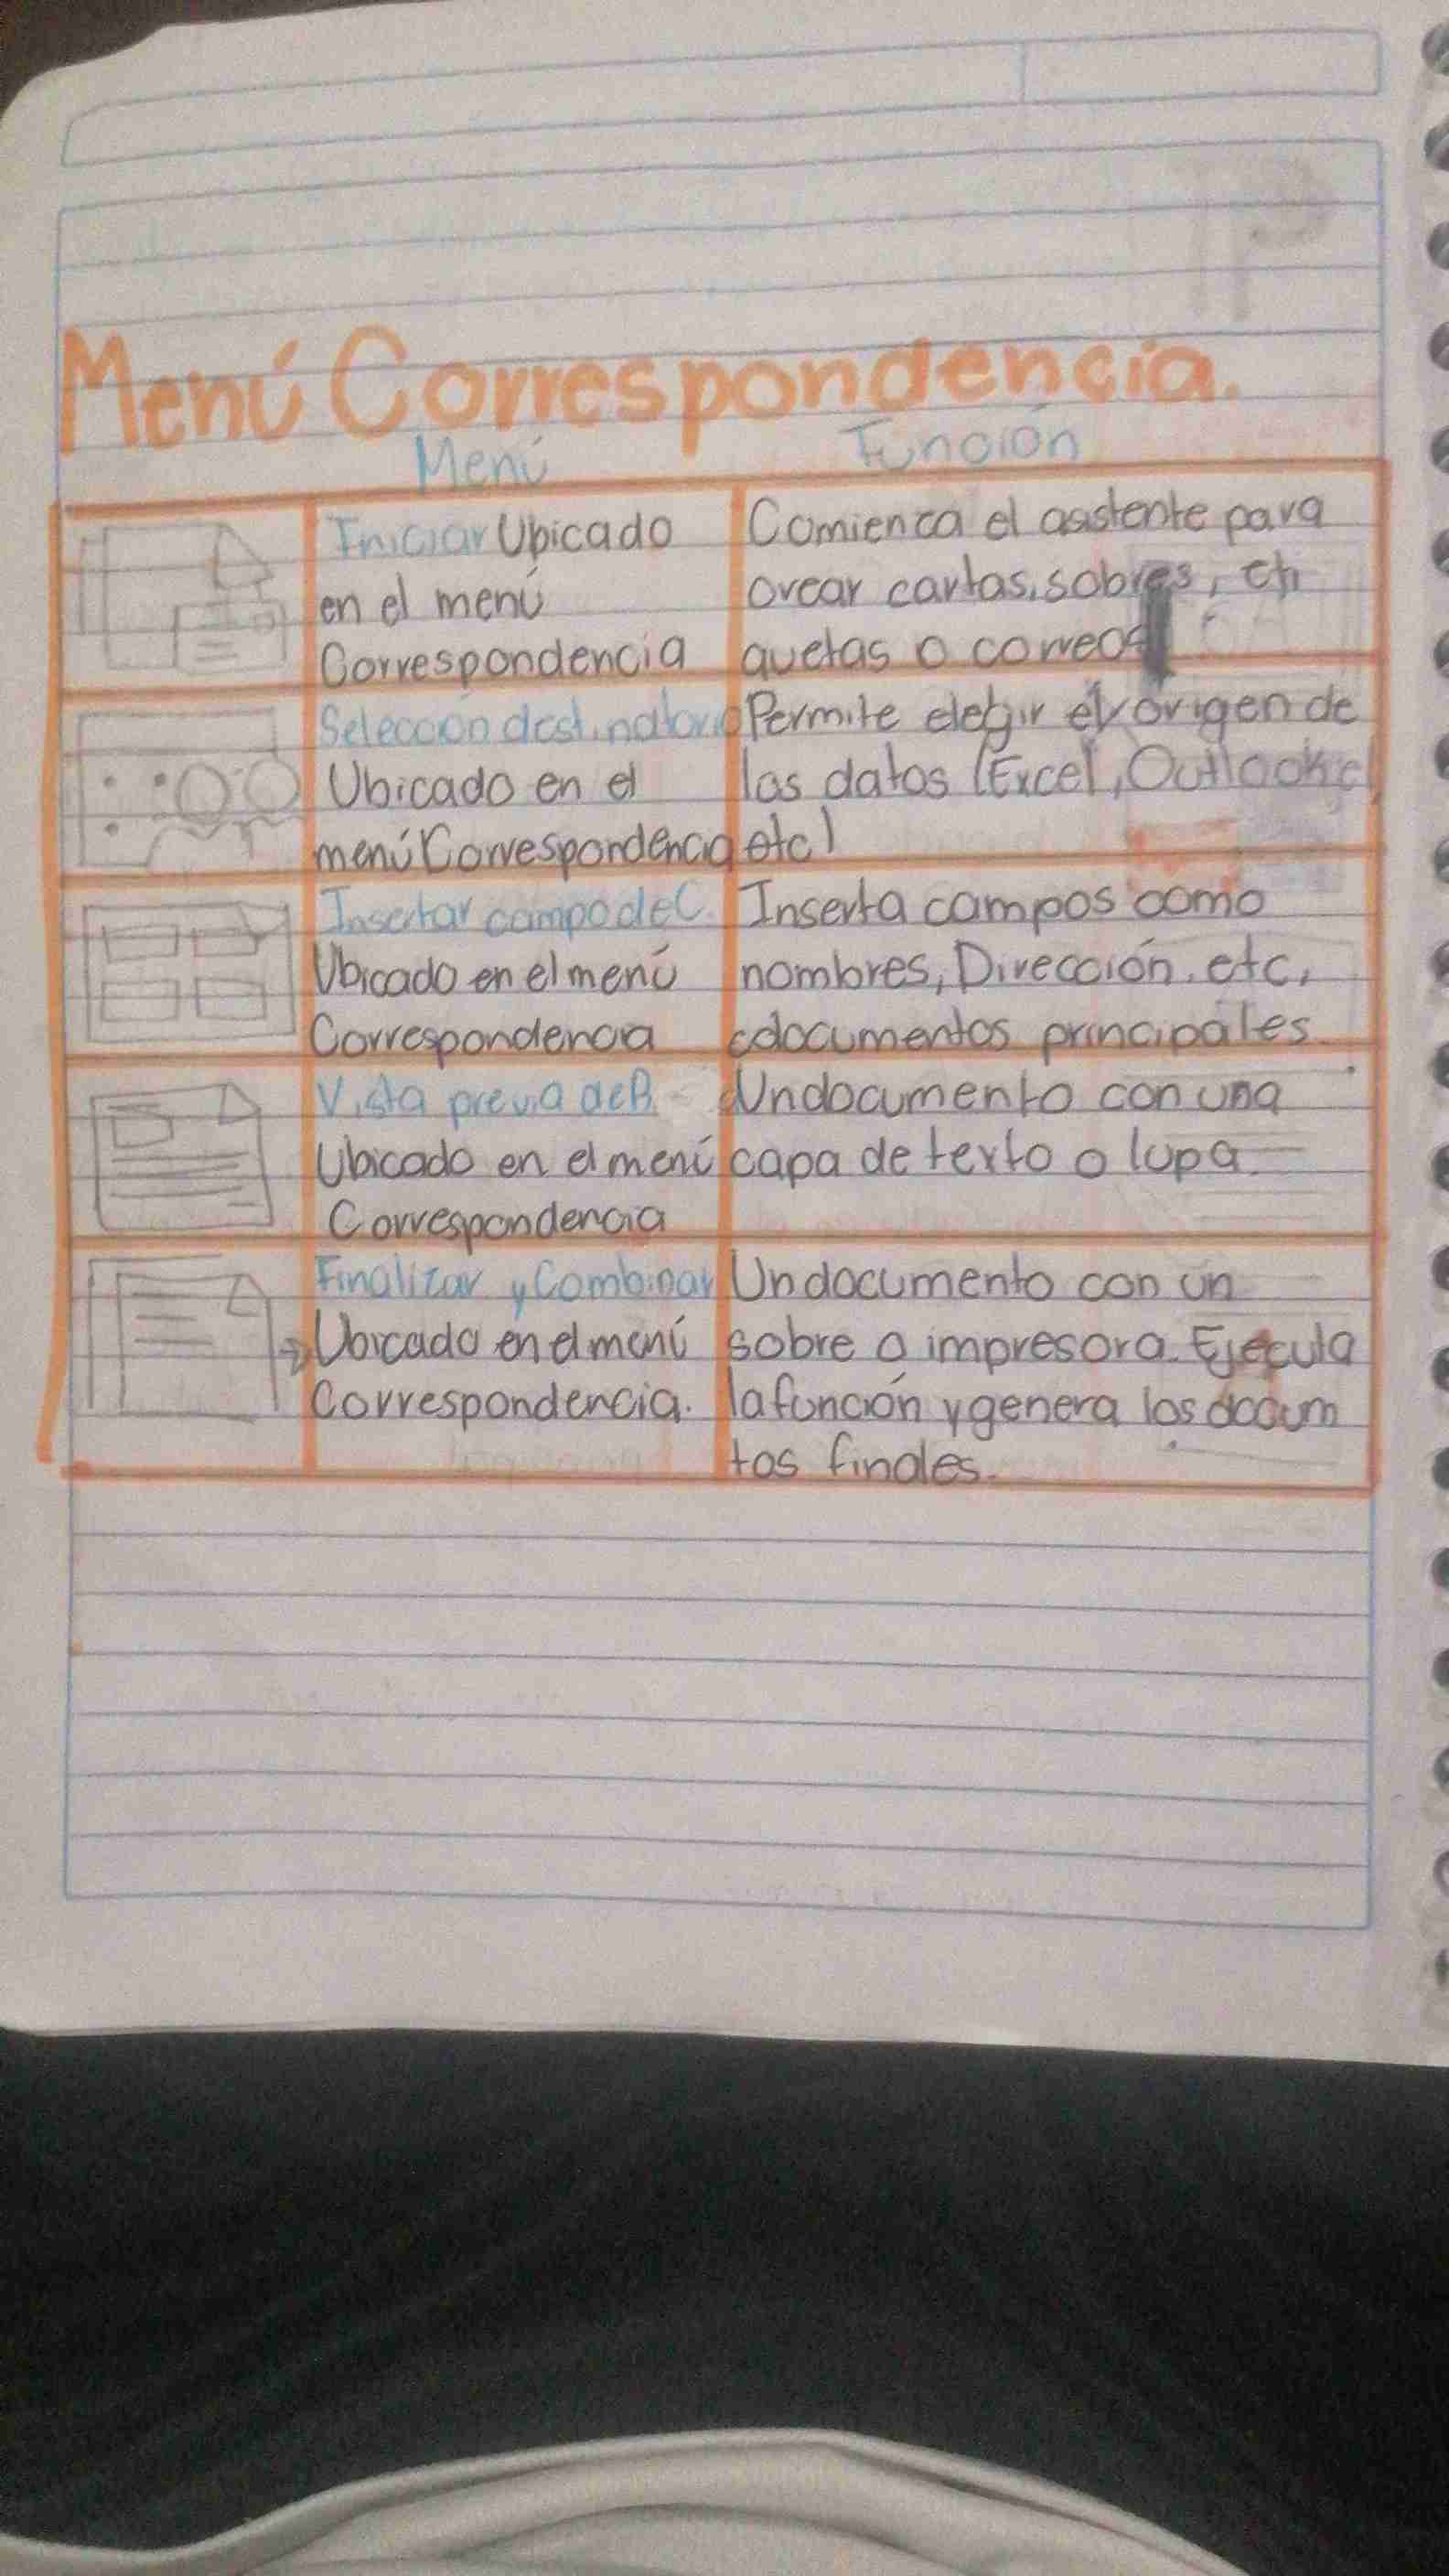 Menú Correspondencia.
Menú
Función
Iniciar Ubicado
en el menú
Correspondencia
Comienza el asistente para
crear cartas, sobres, eti
quetas o correos
Selección destinatario
Ubicado en el
menú Correspondencia
Permite elegir el origen de
los datos (Excel, Outlook
etc)
Insertar campo de C.
Ubicado en el menú
Correspondencia
Inserta campos como
nombres, Dirección, etc,
documentos principales
Vista previa de R.
Ubicado en el menú
Correspondencia
Un documento con una
capa de texto o lupa.
Finalizar y Combinar
Ubicado en el menú
Correspondencia.
Un documento con un
sobre o impresora. Ejecuta
la función y genera los docum
tos finales.